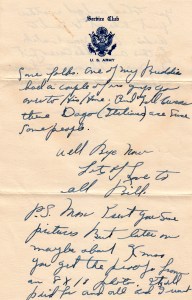 Service Club
U. S. ARMY
Some folks. One of my Buddies
had a couple of us guys go
over to His Home. And I'll swear
these Dago (Italians) are Sure
Some people.
Well Bye Now
Lots of
Love to
all Bill
P.S. Mom I sent you some
pictures But later on
maybe about Xmas
you get the proof from
an 8x10 photo. It's all
paid for and all